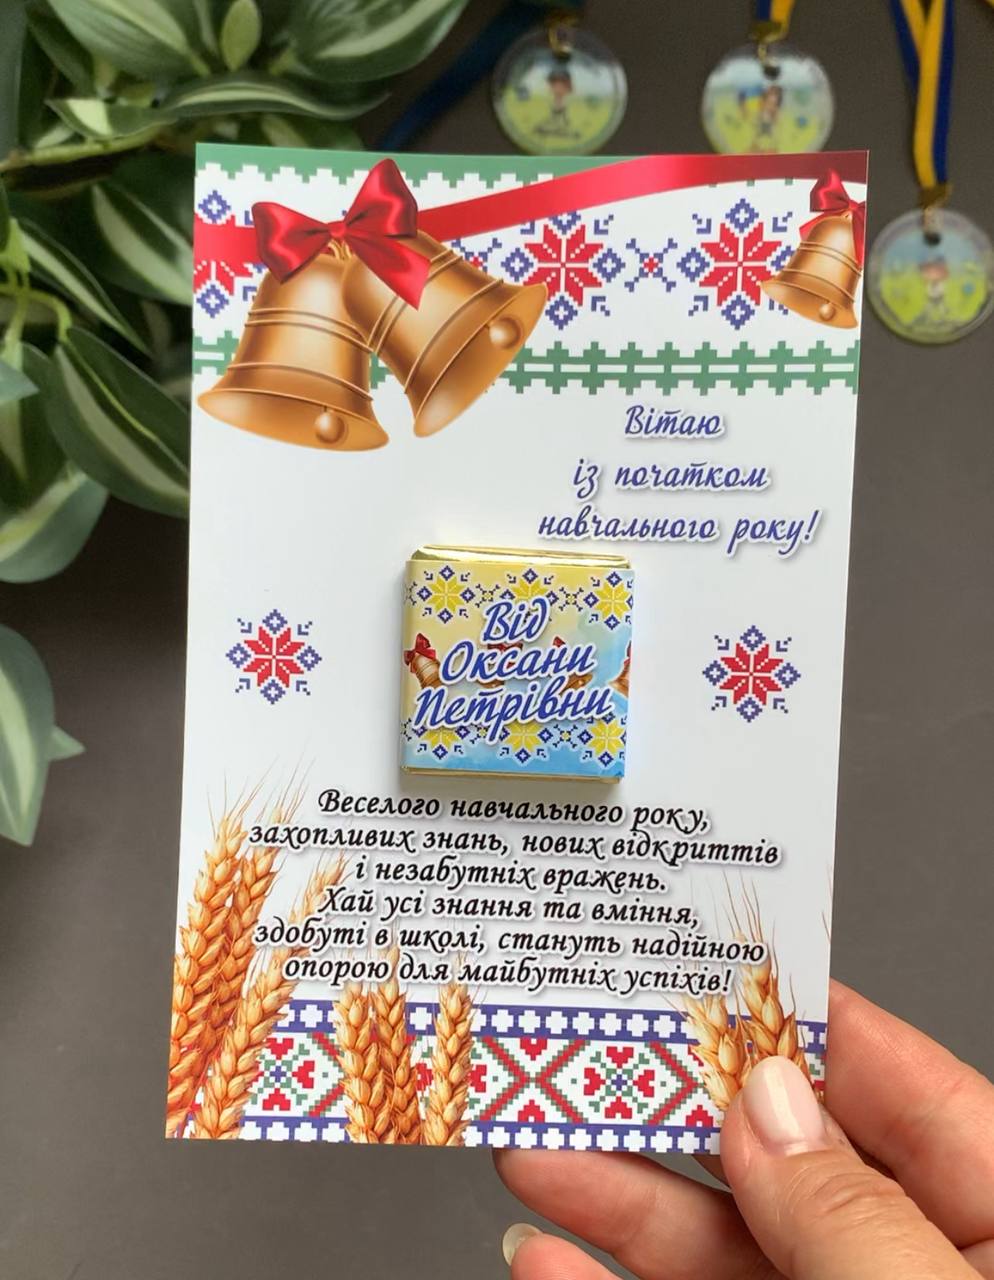 Вітаю
із початком
навчального року!
Від
Оксани
Петрівни
Веселого навчального року,
захопливих знань, нових відкриттів
і незабутніх вражень.
Хай усі знання та вміння,
здобуті в школі, стануть надійною
опорою для майбутніх успіхів!